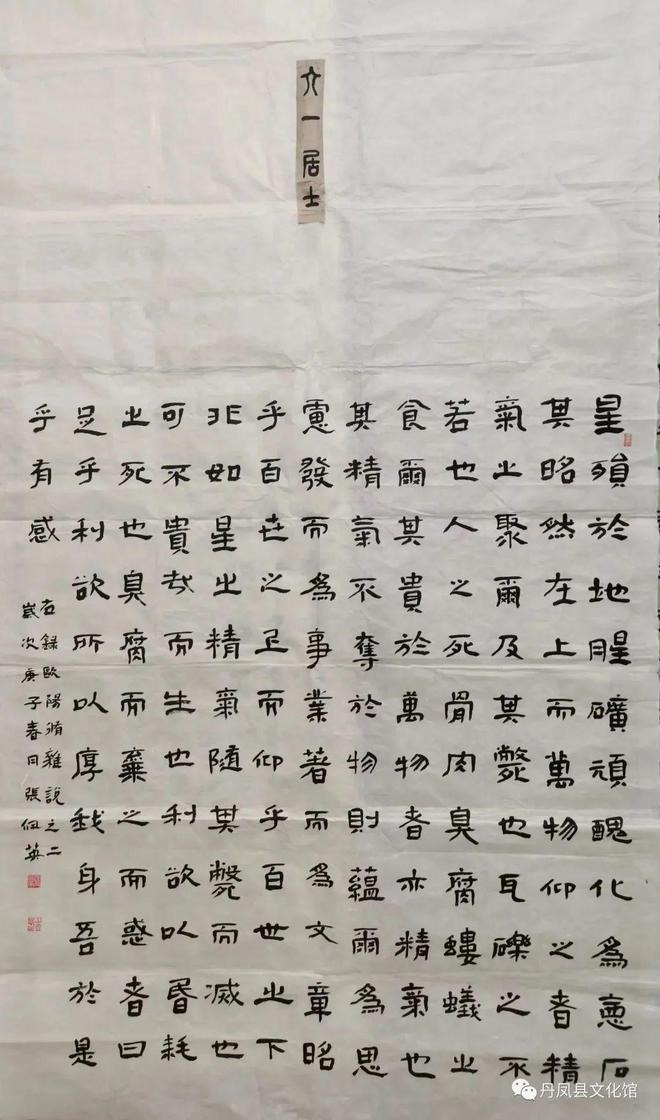 六一居士
星殞於地腥礦頑醜化為惡石
其昭然在上而萬物仰之者精
氣之聚爾及其斃也瓦礫之不
若也人之死骨肉臭腐螻蟻之
食爾其貴於萬物者亦精氣也
其精氣不奪於物則蘊爾為思
慮發而為事業著而為文章昭
乎百世之上而仰乎百世之下
非如星之精氣隨其斃而滅也
可不貴哉而生也利欲以昏耗
之死也臭腐而棄之而惑者曰
足乎利欲所以厚我身吾於是
乎有感
右錄歐陽脩雜說之二
歲次庚子春月張英
丹凤县文化馆